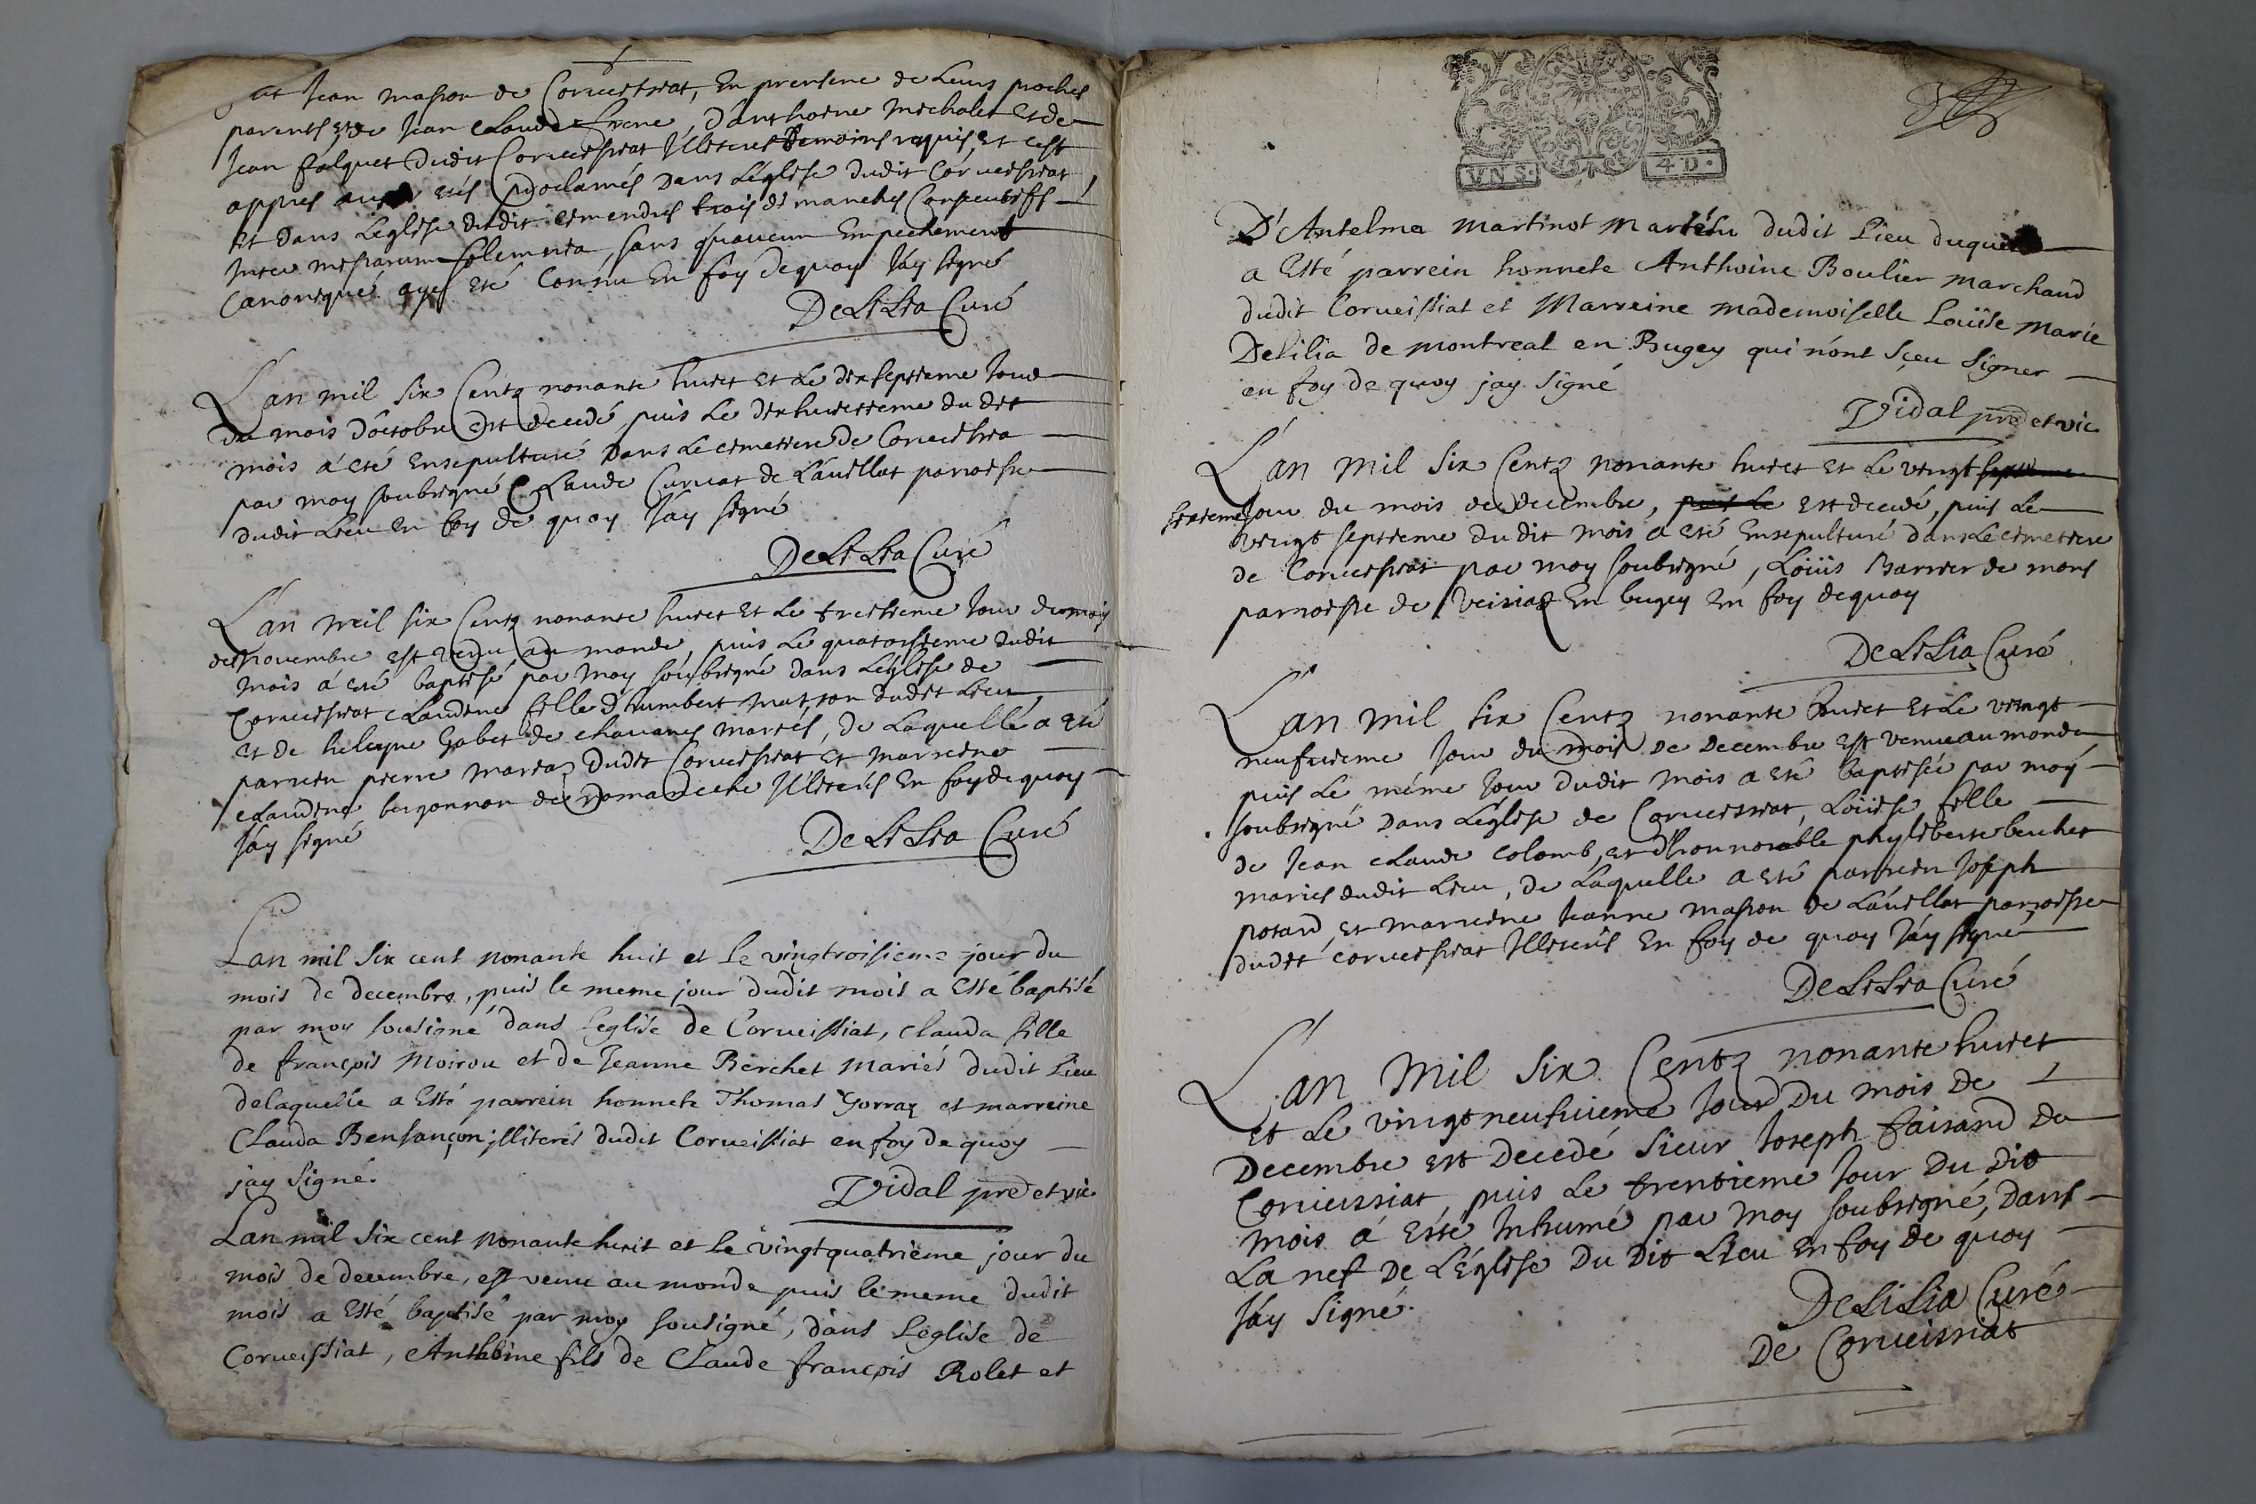 et Jean masson de Corveissiat, En presence de Leurs proches
parents et de Jean claude frene, d'anthoine michalet Et de
Jean falquet dudit Corveissiat Illiterés temoins requis, et c'est
appres avoir etés proclamés Dans L'eglise dudit Corveissiat
Et Dans L'eglise dudit trois dimanches Consecutifs
Inter missarum solemnia, sans qu'aucun Empechement
Canonique aye eté Connu En foy de quoy Jáy signé
DeLiLia Curé
L'an mil six Centz nonante huict et Le dixseptieme Jour
du mois d'octobre Est decedé, puis Le dixhuictieme du dit
mois á eté Ensepulturé Dans Le cimetiere de Corveissia
par moy soubsigné Claude Curvat de Lávillat parroisse
dudit Lieu En foy de quoy Jáy signé
DeLiLia Curé
L'an mil six Centz nonante huict Et Le treisieme Jour du mois
de novembre est venu au monde, puis Le quatorsieme dudit
mois á eté baptisé par moy soubsigné dans L'eglise de
Corveissiat claudine fille d'humbert dudit Lieu
et de de chavanes mariés, de Laquelle a eté
parrein pierre dudit Corveissiat Et marreine
claudine de Romaneche Illiterés En foy de quoy
Jáy signé
DeLiLia Curé
Lan mil six cent nonante huit et le vingtroisieme jour du
mois de decembre, puis le meme jour dudit mois a esté baptisé
par moy sousigné dans l'eglise de Corveissiat, Clauda fille
de françois Moirou et de Jeanne Berchet Mariés dudit Lieu
delaquelle a Esté parrein honnete Thomas Gorraz et marreine
Clauda Bensançon illiterés dudit Corveissiat en foy de quoy
jay signé.
Vidal pre et vic
Lan mil six cent nonante huit et le vingtquatrieme jour du
mois de decembre, est venu au monde puis le meme dudit
mois a esté baptisé par moy sousigné, dans l'eglise de
Corveissiat, Anthoine fils de Claude françois Rolet et
VN S. 4 D.
D'Antelma Martinot Mariésn dudit Lieu duquel
a Esté parrein honnete Anthoine Boulier marchand
dudit Corveissiat et Marreine mademoiselle Louise Marie
Delilia de montreal en Bugey qui n'ont sçeu signer
en foy de quoy jay signé
Vidal pre et vic
L'an mil six Centz nonante huict Et Le vingt septieme
sixieme Jour du mois de decembre, puis Le Est decedé, puis Le
vingt septieme du dit mois a eté Ensepulturé dans Le cimetiere
de Corveissiat par moy soubsigné, Loüis Barrier de mons
parroisse de Veisiaz En bugey En foy dequoy
DeLiLia Curé
L'an mil six Centz nonante huict Et Le vingt
neufvieme Jour du mois de Decembre est venue au monde
puis Le méme Jour dudit mois a eté baptisée par moy
soubsigné Dans L'eglise de Corveissiat, Loüise fille
de Jean claude colomb, et d'honnorable phyliberte berchet
mariés dudit Lieu, de Laquelle a eté parrein Joseph
potard, et marreine Jeanne masson de Lávillat parroisse
dudit corveissiat Illiterés En foy de quoy Jáy signé
DeLiLia Curé
L'an Mil Six Centz nonante huict
Et Le vingt neufvieme Jour Du mois De
Decembre est Decedé Sieur Joseph faisand du
Corveissiat, puis Le trentieme Jour Du Dit
mois á Esté Inhumé par moy soubsigné, Dans
La nef De L'Eglise Du Dit Lieu En foy De quoy
Jáy Signé.
DeLiLia Curé
De Corveissiat